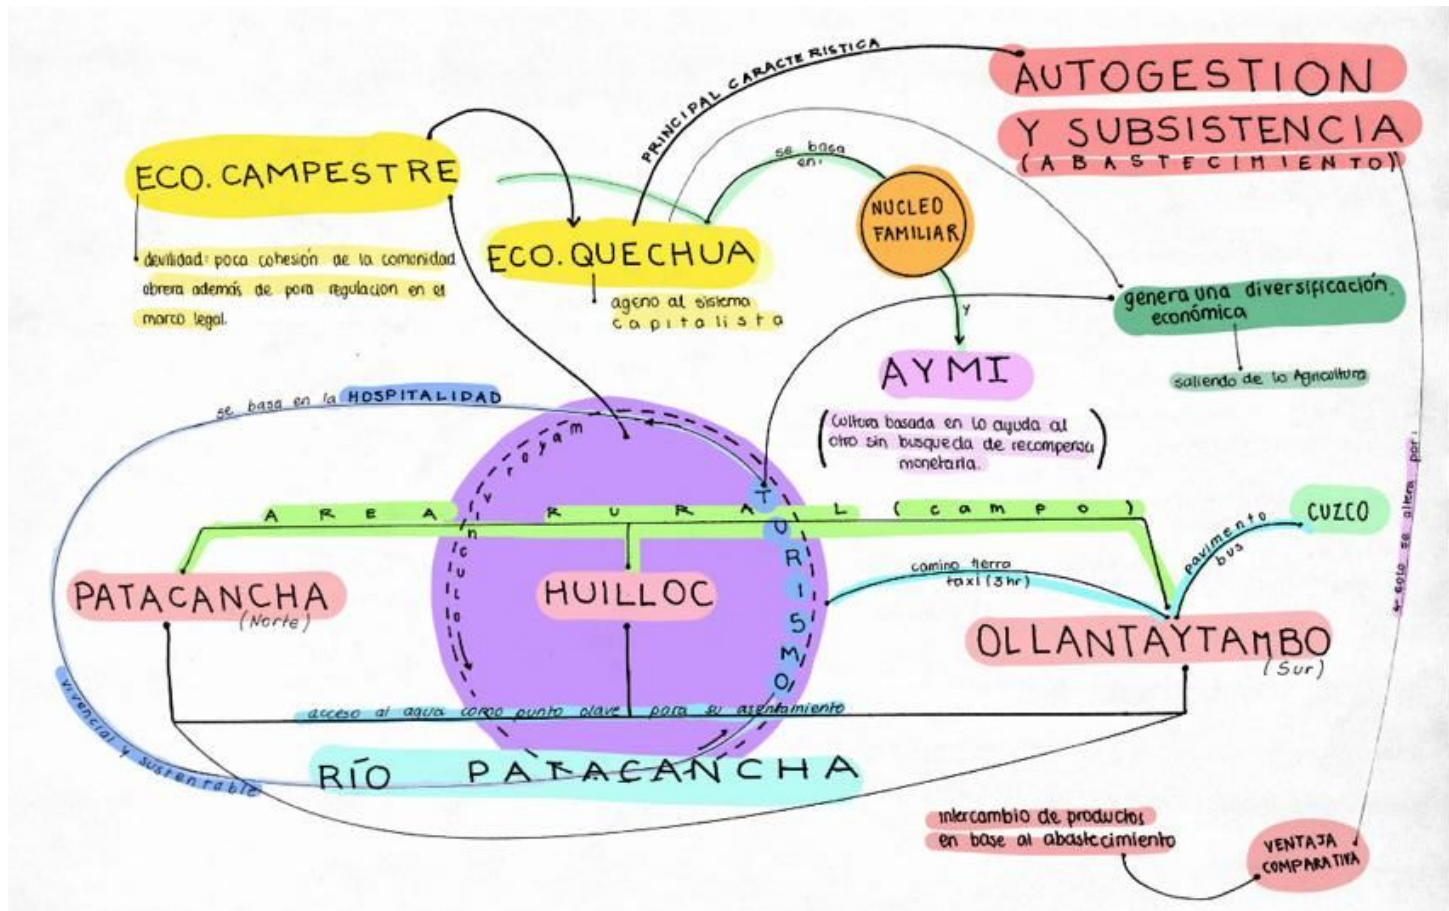 PRINCIPAL CARACTERISTICA
AUTOGESTION
Y SUBSISTENCIA
(ABASTECIMIENTO)
ECO. CAMPESTRE
devilidad: poca cohesión de la comunidad
obrera además de pora regulacion en el
marco legal.
ECO. QUECHUA
ageno al sistema
capitalista
se basa
en:
NUCLEO
FAMILIAR
y
AYMI
(Cultura basada en la ayuda al
otro sin busqueda de recompensa
monetaria.)
genera una diversificación
económica
saliendo de la Agricultura
se basa en la HOSPITALIDAD
mayor vinculo
TURISMO
AREA RURAL (campo)
PATACANCHA
(Norte)
HUILLOC
camino tierra
taxi (3hr)
OLLANTAYTAMBO
(Sur)
pavimento
bus
CUZCO
solo se altera por:
vivencial y sustentable
acceso al agua como punto clave para su asentamiento
RÍO PATACANCHA
intercambio de productos
en base al abastecimiento
VENTAJA
COMPARATIVA